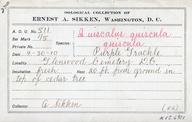 OOLOGICAL COLLECTION OF
ERNEST A. SIKKEN, WASHINGTON, D. C.
A. O. U. 511 Quiscalus quiscula
Set Mark 1/5 quiscula
Name Purple Grackle
Date 4-30-10
Locality Glenwood Cemetery D.C.
Incubation fresh Nest 20 ft. from ground in
top of cedar tree
E. Sikken